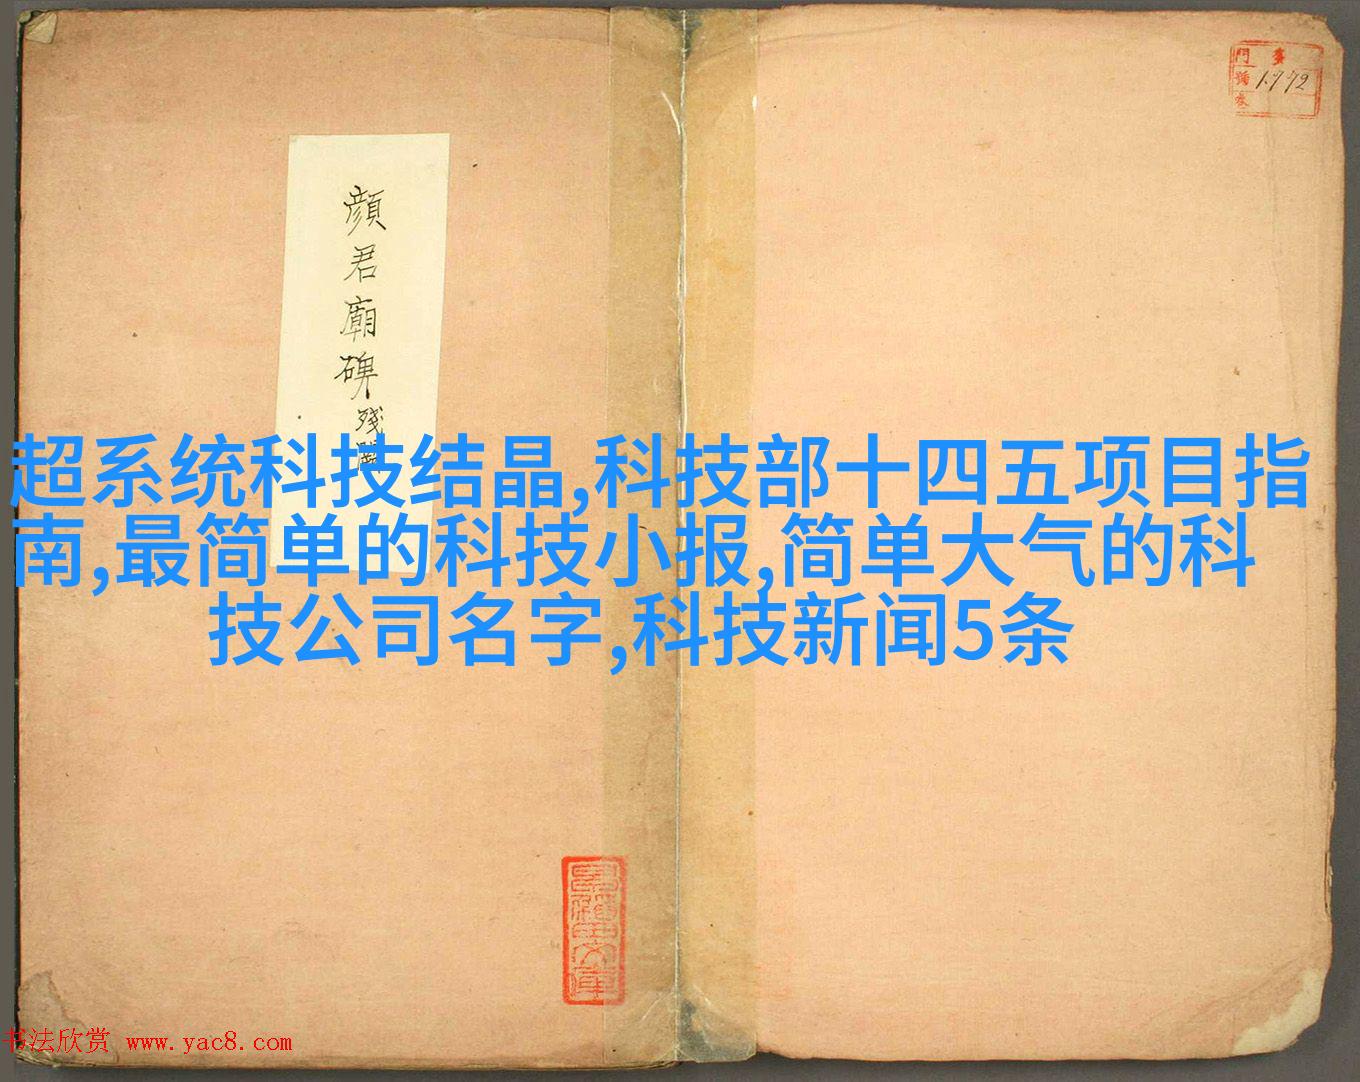 門 第
號 1772
卷
顔君廟碑殘闕
超系统科技结晶,科技部十四五项目指
南,最简单的科技小报,简单大气的科
技公司名字,科技新闻5条
书法欣赏 www.yac8.com